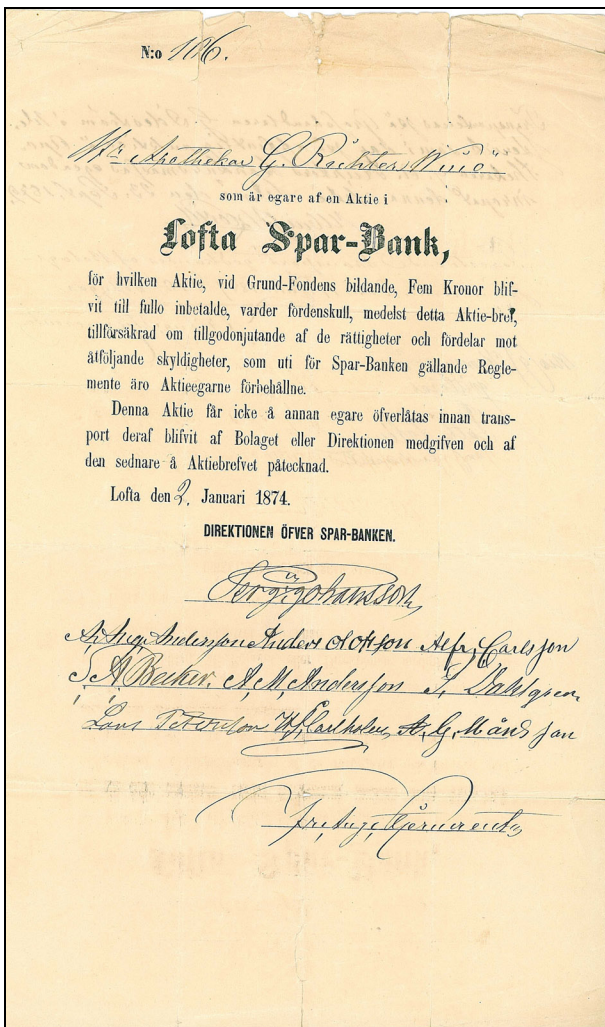 N:o 1126.
Hr Apothekar G. Richter
som är egare af en Aktie i
Lofta Spar-Bank,
för hvilken Aktie, vid Grund-Fondens bildande, Fem Kronor blif-
vit till fullo inbetalde, varder fördenskull, medelst detta Aktie-bref,
tillförsäkrad om tillgodonjutande af de rättigheter och fördelar mot
åtföljande skyldigheter, som uti för Spar-Banken gällande Regle-
mente äro Aktieegarne förbehållne.
Denna Aktie får icke å annan egare öfverlåtas innan trans-
port deraf blifvit af Bolaget eller Direktionen medgifven och af
den sednare å Aktiebrefvet påtecknad.
Lofta den 2. Januari 1874.
DIREKTIONEN ÖFVER SPAR-BANKEN.
Johansson
Andersson Anders Olofsson Alfr. Carlsson
S A Becker. A. M. Andersson Dahlgren
Lars A. G. Månsson